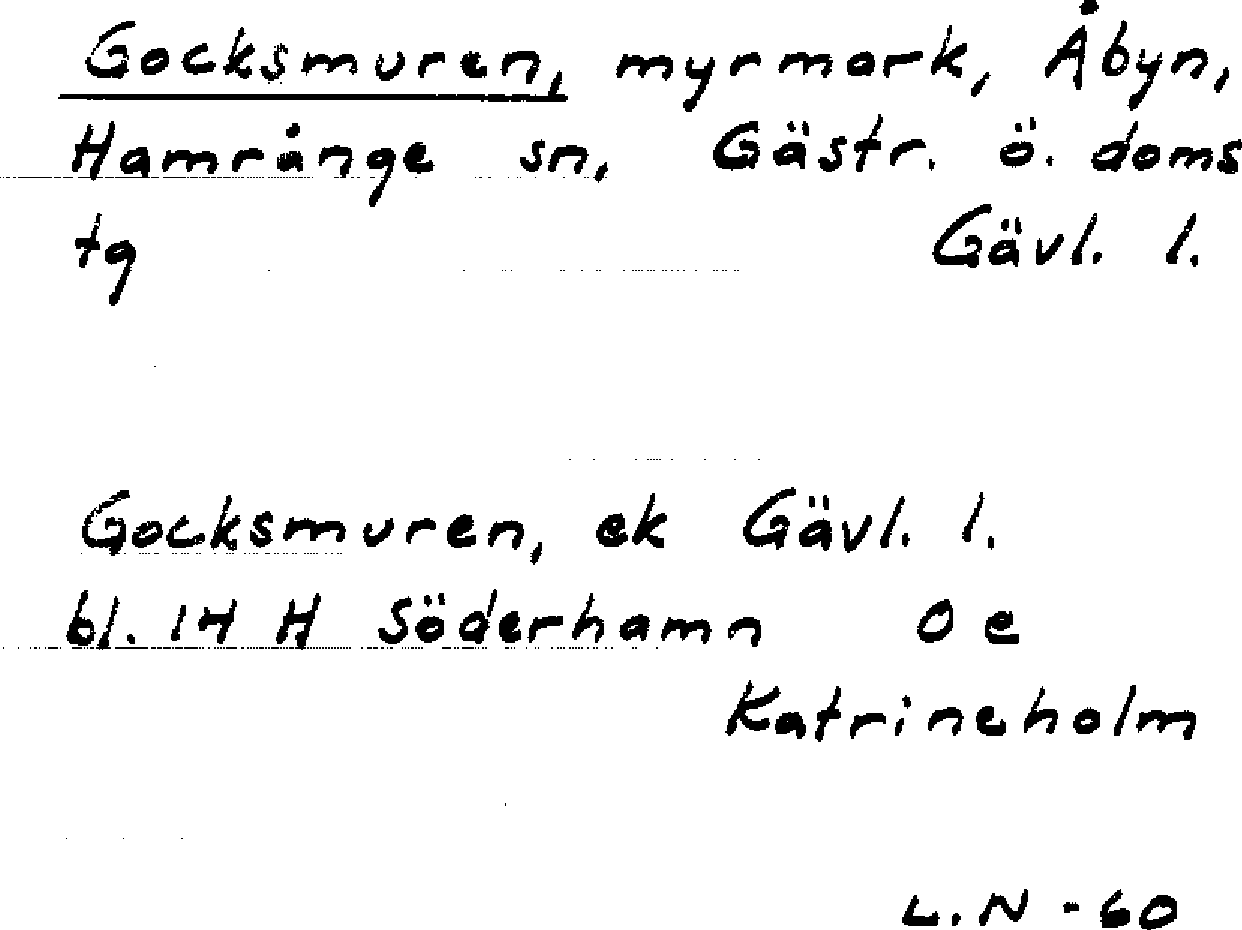 Gocksmuren, myrmark, Åbyn,
Hamrånge sn, Gästr. ö. doms
tg Gävl. l.
Gocksmuren, ek Gävl. l.
bl. 14 H Söderhamn 0 e
Katrineholm
L.N - 60